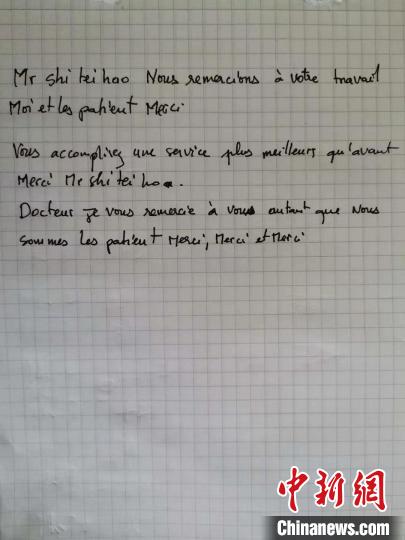 Mr shi tei hao Nous remercions à votre travail
Moi et les patient Merci
Vous accomplirez une service plus meilleurs qu'avant
Merci Mr shi tei hao.
Docteur je vous remercie à vous autant que Nous
sommes les patient Merci, Merci et Merci
中新网
Chinanews.com